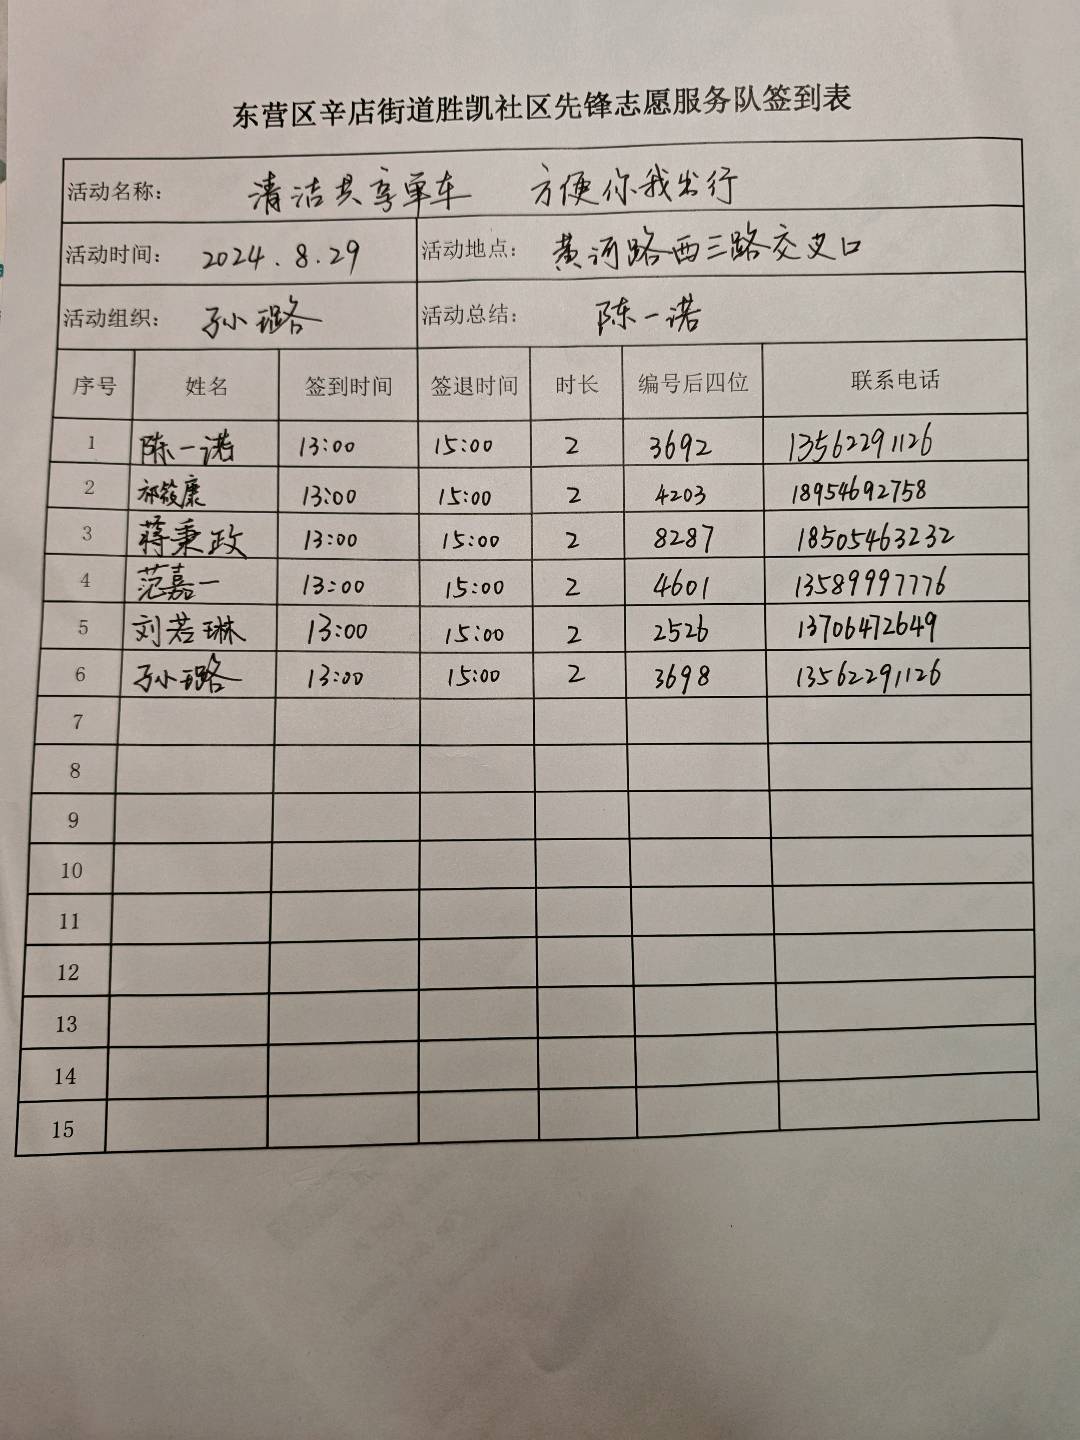 东营区辛店街道胜凯社区先锋志愿服务队签到表
活动名称： 清洁共享单车 方便你我出行
活动时间： 2024.8.29 活动地点： 黄河路西三路交叉口
活动组织： 孙璐 活动总结： 陈一诺
序号 姓名 签到时间 签退时间 时长 编号后四位 联系电话
1 陈一诺 13:00 15:00 2 3692 13562291126
2 祁筱康 13:00 15:00 2 4203 18954692758
3 蒋秉政 13:00 15:00 2 8287 18505463232
4 范嘉一 13:00 15:00 2 4601 13589997776
5 刘若琳 13:00 15:00 2 2526 13706472649
6 孙璐 13:00 15:00 2 3698 13562291126
7
8
9
10
11
12
13
14
15